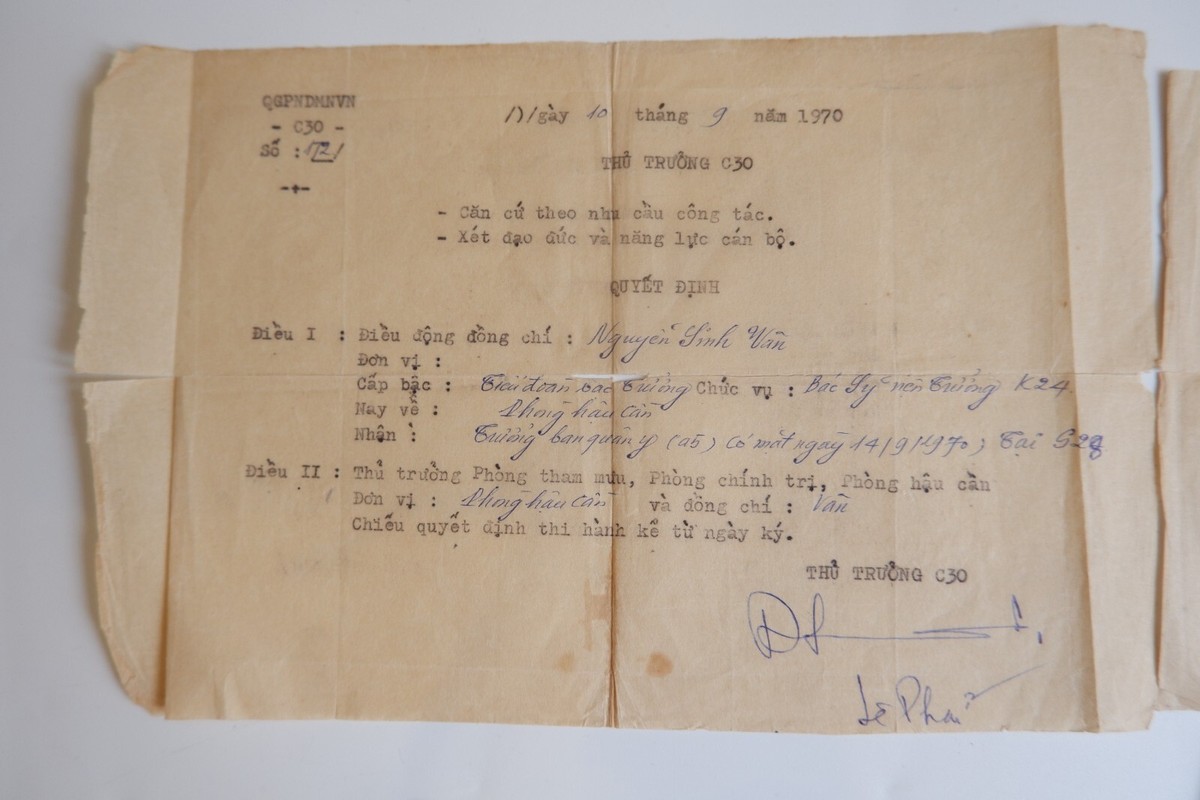 QGPNDMNVN
- C30 -
Số : 172/
-+-
Ngày 10 tháng 9 năm 1970
THỦ TRƯỞNG C30
- Căn cứ theo nhu cầu công tác.
- Xét đạo đức và năng lực cán bộ.
QUYẾT ĐỊNH
Điều I : Điều động đồng chí : Nguyễn Sinh Vân
Đơn vị :
Cấp bậc : Tiểu đoàn bậc trưởng Chức vụ : Bác sỹ viện trưởng K24.
Nay về : Phòng hậu cần
Nhận : Trưởng ban quân y (a5) có mặt ngày 14/9/1970, Tại S28
Điều II : Thủ trưởng Phòng tham mưu, Phòng chính trị, Phòng hậu cần
Đơn vị : Phòng hậu cần và đồng chí : Vân
Chiếu quyết định thi hành kể từ ngày ký.
THỦ TRƯỞNG C30
Lê Phải